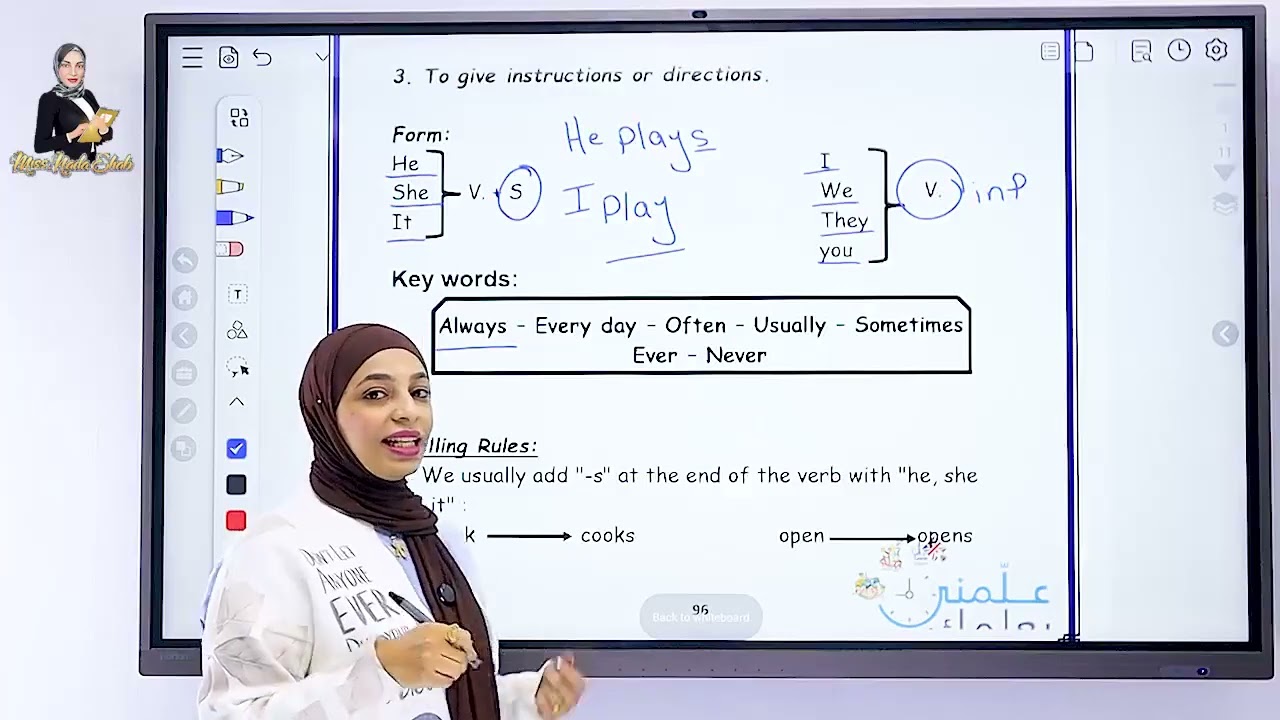 Miss Nada Ehab
3. To give instructions or directions.
Form:
He
She
It
V. + S
He plays
I play
I
We
They
you
V. inf
Key words:
Always - Every day - Often - Usually - Sometimes
Ever - Never
lling Rules:
We usually add "-s" at the end of the verb with "he, she
it" :
k → cooks
open → opens
96
Back to whiteboard
علمني
1
11
T
DON'T LET
ANYONE
EVER